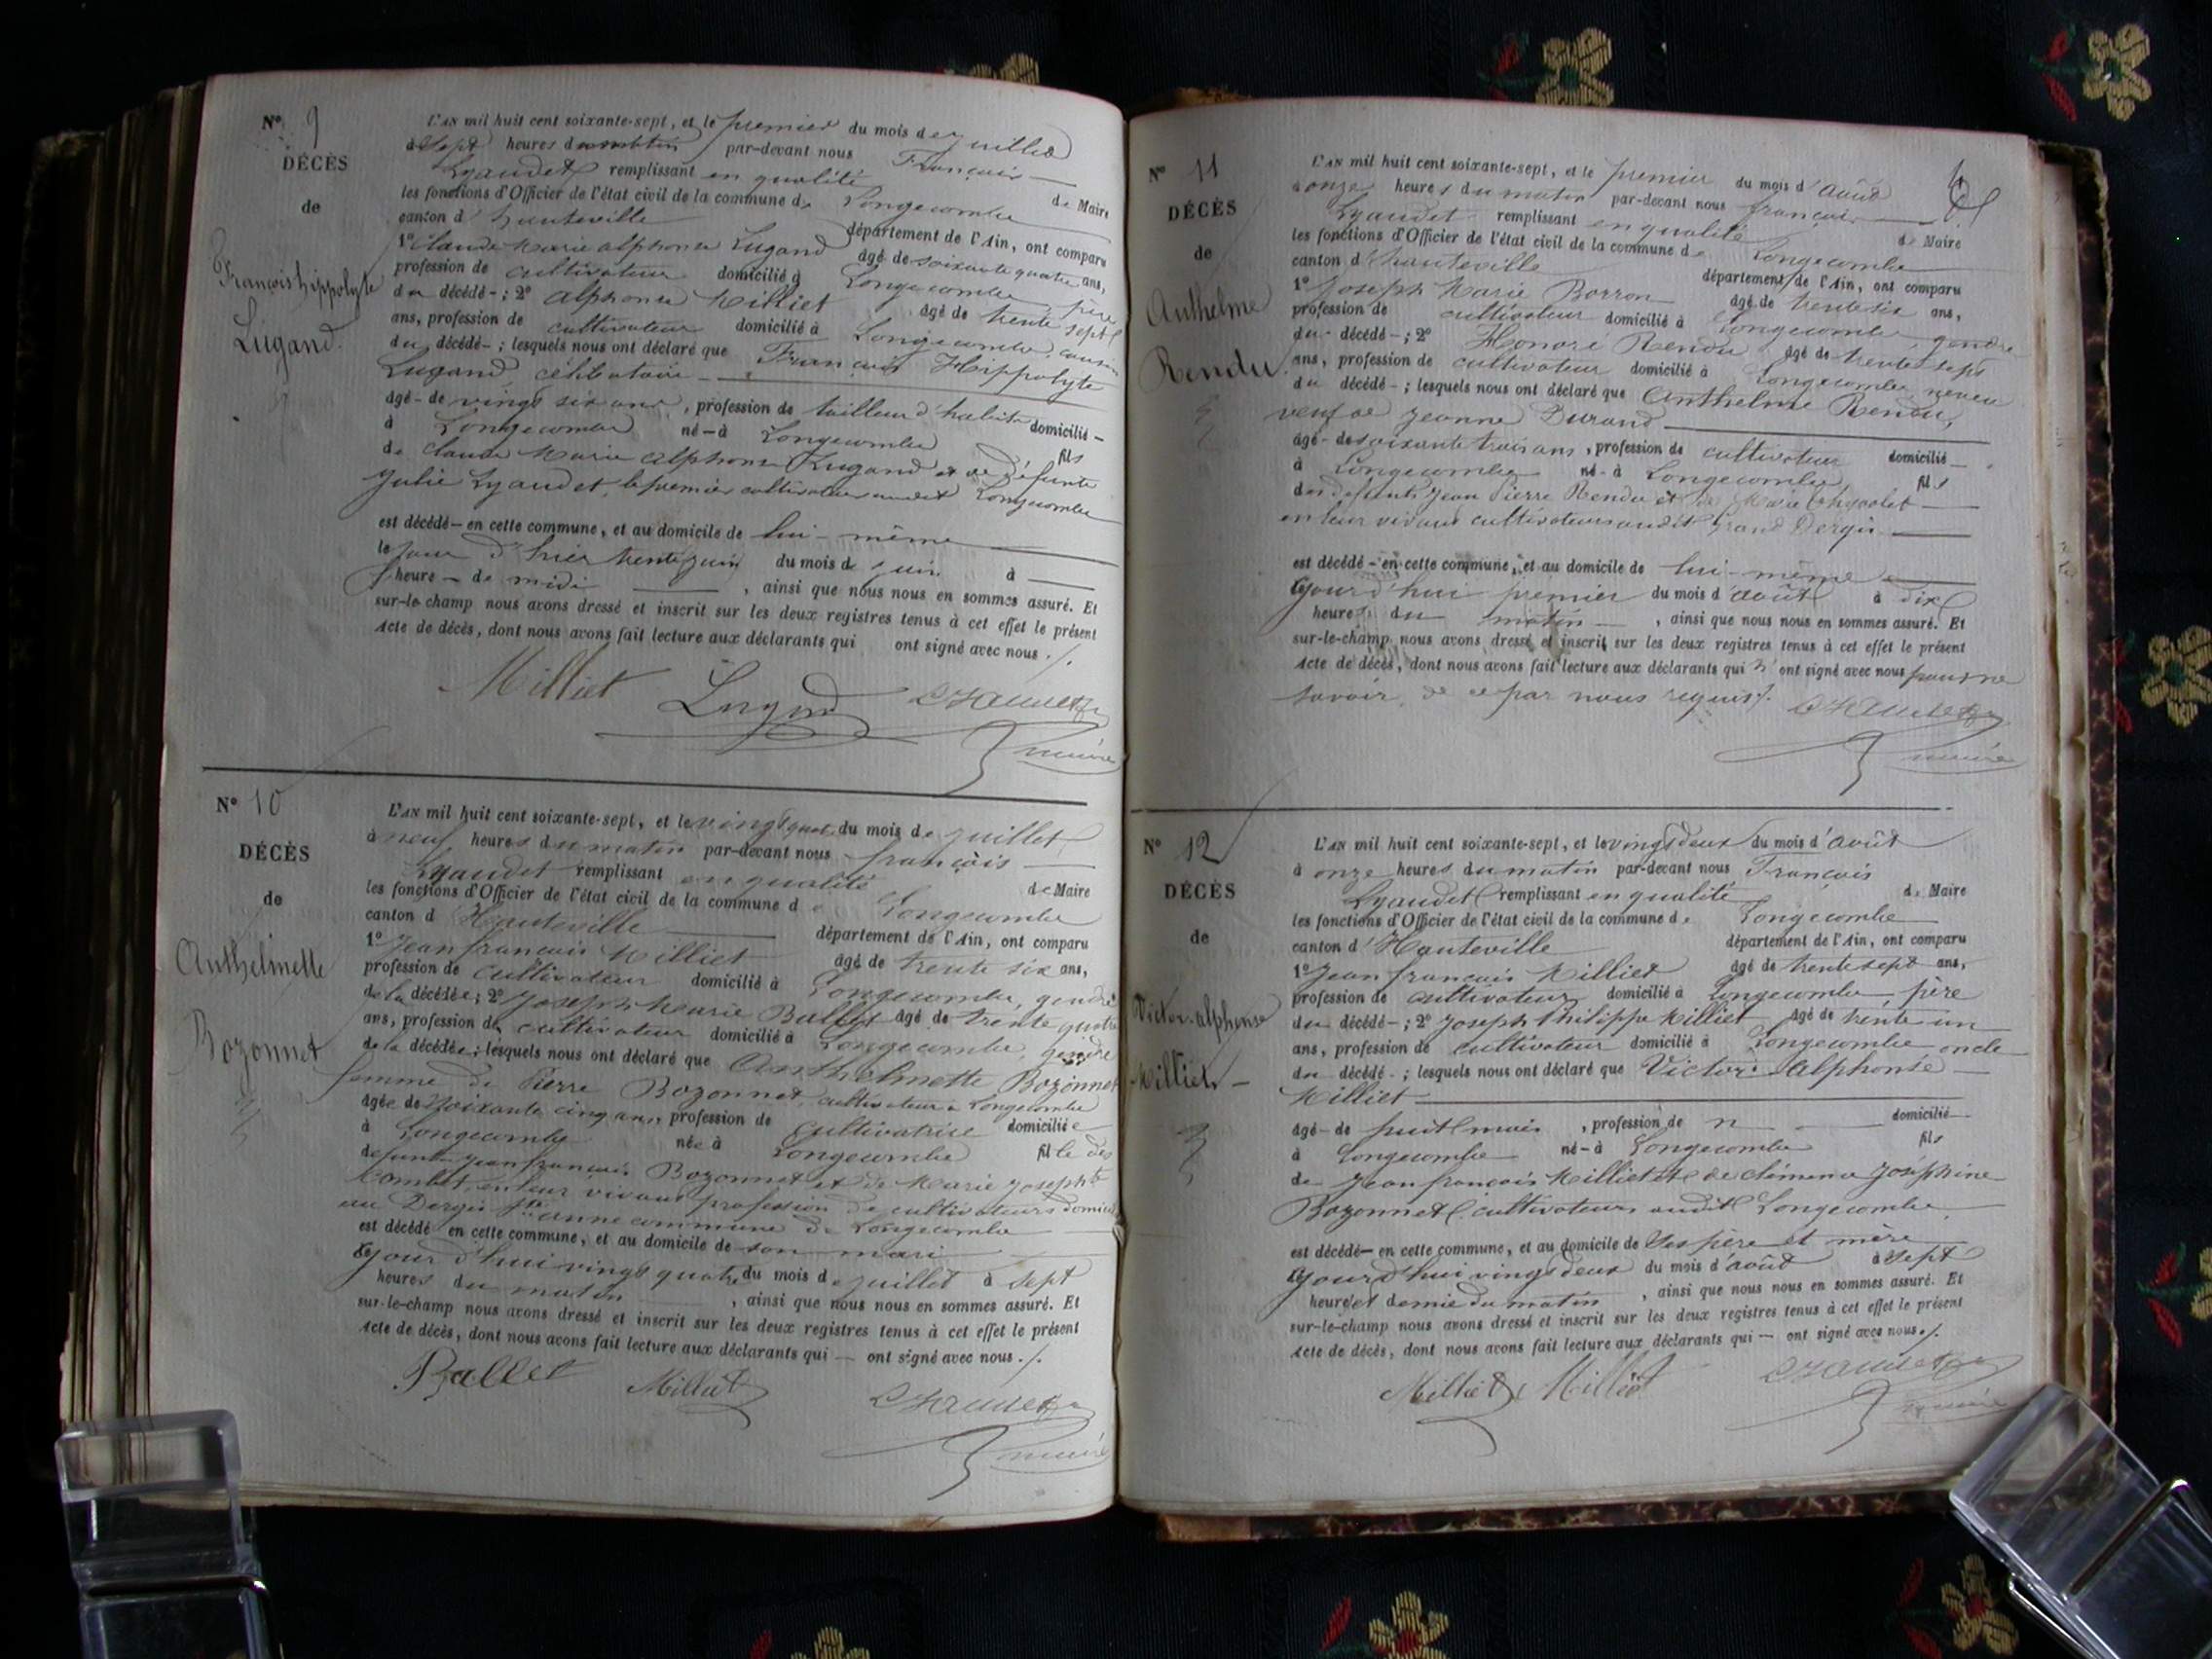 N° 9
DÉCÈS
de
François hippolyte
Lugand.
L'AN mil huit cent soixante-sept, et le premier du mois de juillet
à sept heures du matin par-devant nous François
Lyaudet remplissant en qualité de Maire
les fonctions d'Officier de l'état civil de la commune de Longecombe
canton d'hauteville département de l'Ain, ont comparu
1° Claude Marie alphonse Lugand âgé de soixante quatre ans,
profession de cultivateur domicilié à Longecombe, père
du décédé-; 2° alphonse Milliet âgé de trente sept
ans, profession de cultivateur domicilié à Longecombe, cousin
du décédé-; lesquels nous ont déclaré que François Hippolyte
Lugand, célibataire
âgé-de vingt six ans, profession de tailleur d'habits domicilié-
à Longecombe né-à Longecombe fils
de Claude Marie alphonse Lugand et de défunte
Julie Lyaudet, le premier cultivateur audit Longecombe
est décédé-en cette commune, et au domicile de lui-même
le jour d'hier trente juin du mois de juin à
heure-de midi, ainsi que nous nous en sommes assuré. Et
sur-le-champ nous avons dressé et inscrit sur les deux registres tenus à cet effet le présent
Acte de décès, dont nous avons fait lecture aux déclarants qui ont signé avec nous./.
Milliet Lugand Lyaudet
maire
N° 10
DÉCÈS
de
Anthelmette
Bozonnet
L'AN mil huit cent soixante-sept, et le vingt quatre du mois de juillet
à neuf heures du matin par-devant nous françois
Lyaudet remplissant en qualité de Maire
les fonctions d'Officier de l'état civil de la commune de Longecombe
canton d Hauteville département de l'Ain, ont comparu
1° Jean françois Milliet âgé de trente six ans,
profession de cultivateur domicilié à Longecombe, gendre
de la décédée; 2° Joseph Marie Ballet âgé de trente quatre
ans, profession de cultivateur domicilié à Longecombe, gendre
de la décédée; lesquels nous ont déclaré que Anthelmette Bozonnet
femme de Pierre Bozonnet, cultivateur à Longecombe
âgée de soixante cinq ans, profession de cultivatrice domiciliée
à Longecombe née à Longecombe fille des
défunts Jean françois Bozonnet et de Marie Josephte
Combet, en leur vivant profession de cultivateurs domiciliés
au Dergis Ste anne commune de Longecombe
est décédé en cette commune, et au domicile de son mari
le jour d'hui vingt quatre du mois de juillet à sept
heures du matin, ainsi que nous nous en sommes assuré. Et
sur-le-champ nous avons dressé et inscrit sur les deux registres tenus à cet effet le présent
Acte de décès, dont nous avons fait lecture aux déclarants qui - ont signé avec nous./.
Ballet Milliet Lyaudet
maire
N° 11
DÉCÈS
de
Anthelme
Rendu.
L'AN mil huit cent soixante-sept, et le premier du mois d'août
à onze heures du matin par-devant nous françois
Lyaudet remplissant en qualité de Maire
les fonctions d'Officier de l'état civil de la commune de Longecombe
canton d'hauteville département de l'Ain, ont comparu
1° Joseph Marie Borron âgé de trente six ans,
profession de cultivateur domicilié à Longecombe, gendre
du décédé-; 2° Honoré Rendu âgé de trente sept
ans, profession de cultivateur domicilié à Longecombe, neveu
du décédé-; lesquels nous ont déclaré que Anthelme Rendu,
veuf de Jeanne Durand
âgé-de soixante trois ans, profession de cultivateur domicilié-
à Longecombe né-à Longecombe, fils
des défunts Jean Pierre Rendu et de Marie
en leur vivant cultivateurs audit grand Dergis
est décédé-en cette commune, et au domicile de lui-même
le jour d'hui premier du mois d'août à dix
heures du matin, ainsi que nous nous en sommes assuré. Et
sur-le-champ nous avons dressé et inscrit sur les deux registres tenus à cet effet le présent
Acte de décès, dont nous avons fait lecture aux déclarants qui n'ont signé avec nous pour ne
savoir, de ce par nous requis./. Lyaudet
maire
N° 12
DÉCÈS
de
Victor alphonse
Milliet
L'AN mil huit cent soixante-sept, et le vingt deux du mois d'août
à onze heures du matin par-devant nous François
Lyaudet remplissant en qualité de Maire
les fonctions d'Officier de l'état civil de la commune de Longecombe
canton d'Hauteville département de l'Ain, ont comparu
1° Jean françois Milliet âgé de trente sept ans,
profession de cultivateur domicilié à Longecombe, père
du décédé-; 2° Joseph Philippe Milliet âgé de trente un
ans, profession de cultivateur domicilié à Longecombe oncle
du décédé-; lesquels nous ont déclaré que Victor Alphonse
Milliet
âgé-de huit mois, profession de n domicilié
à Longecombe né-à Longecombe fils
de Jean françois Milliet et de clémence Joséphine
Bozonnet, cultivateurs audit Longecombe,
est décédé-en cette commune, et au domicile de ses père et mère
le jour d'hui vingt deux du mois d'août à sept
heures et demie du matin, ainsi que nous nous en sommes assuré. Et
sur-le-champ nous avons dressé et inscrit sur les deux registres tenus à cet effet le présent
Acte de décès, dont nous avons fait lecture aux déclarants qui - ont signé avec nous./.
Milliet Milliet Lyaudet
maire